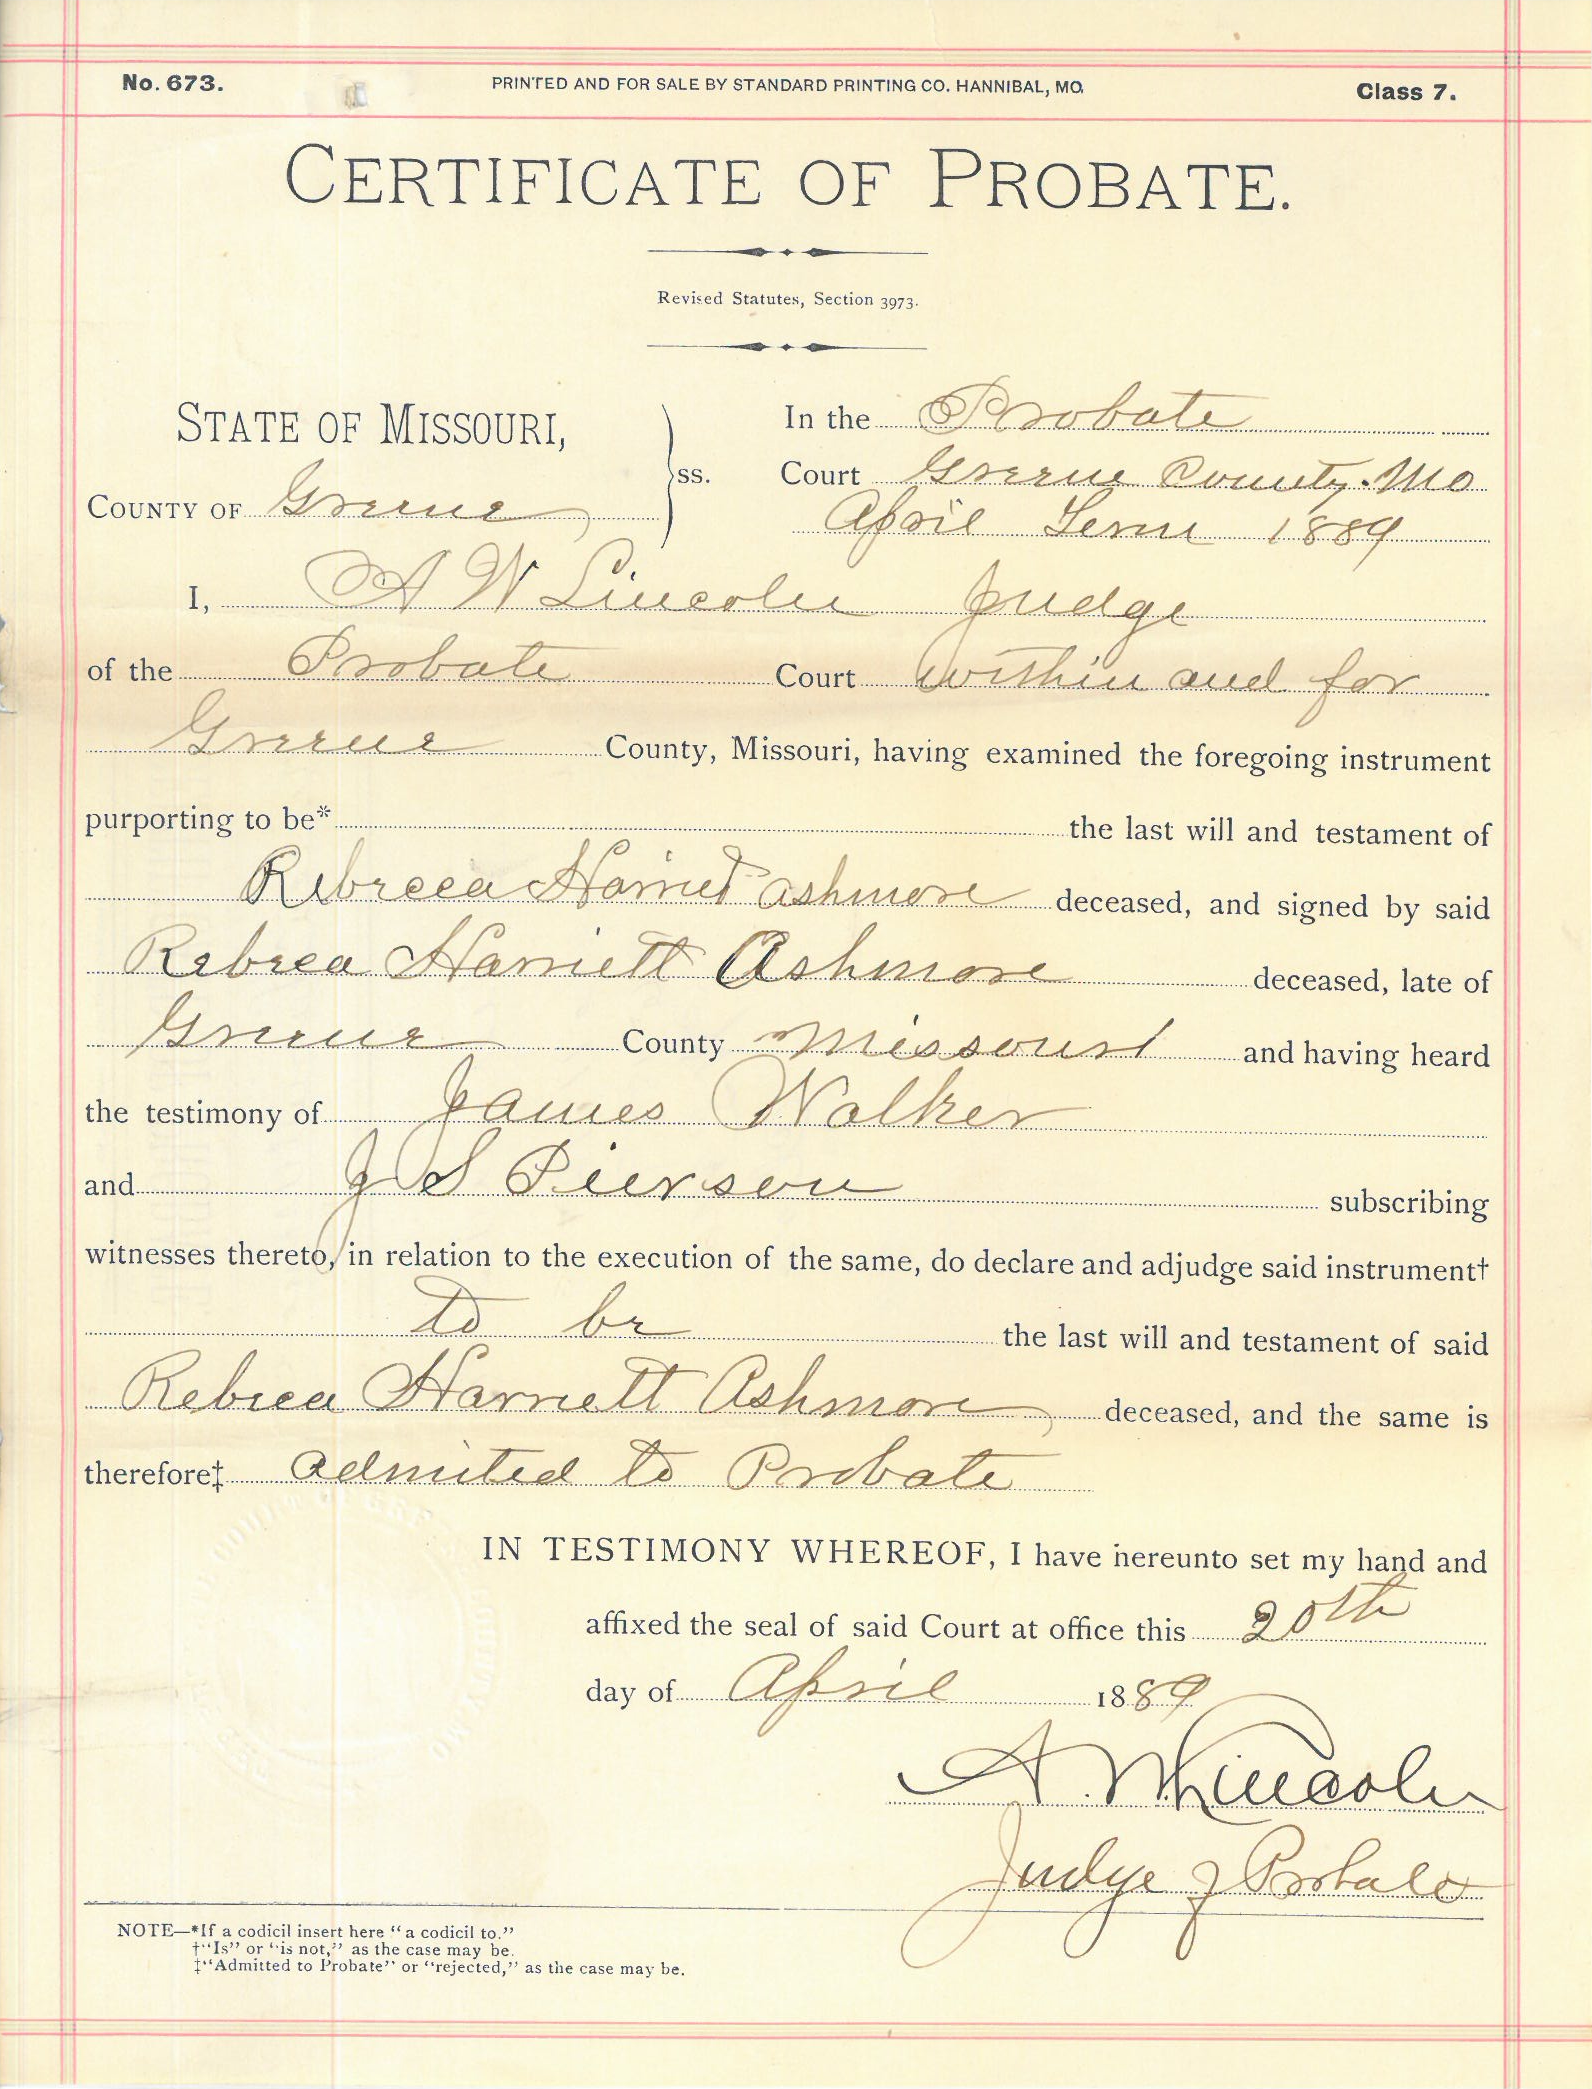 No. 673.
PRINTED AND FOR SALE BY STANDARD PRINTING CO. HANNIBAL, MO.
Class 7.
CERTIFICATE OF PROBATE.
Revised Statutes, Section 3973.
STATE OF MISSOURI,
COUNTY OF Greene
ss.
In the Probate
Court Greene County. Mo
April Term 1889
I, A W Lincoln Judge
of the Probate Court within and for
Greene County, Missouri, having examined the foregoing instrument
purporting to be* the last will and testament of
Rebrecca Harriet Ashmore deceased, and signed by said
Rebreca Harriett Ashmore deceased, late of
Greene County Missouri and having heard
the testimony of James Walker
and J S Pierson subscribing
witnesses thereto, in relation to the execution of the same, do declare and adjudge said instrument†
to be the last will and testament of said
Rebreca Harriett Ashmore, deceased, and the same is
therefore‡ admited to Probate
IN TESTIMONY WHEREOF, I have hereunto set my hand and
affixed the seal of said Court at office this 20th
day of April 1889
A. W. Lincoln
Judge of Probate
NOTE—*If a codicil insert here "a codicil to."
†"Is" or "is not," as the case may be.
‡"Admitted to Probate" or "rejected," as the case may be.